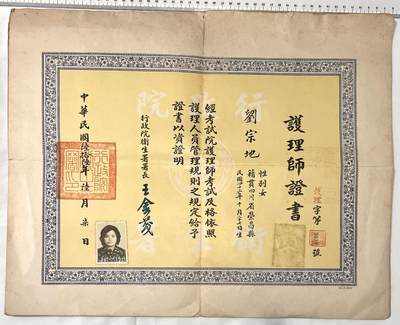 護理師證書
護理字第
號
劉宗地
性別女
籍貫四川省榮昌縣
民國十二年十月十七日生
經考試院護理師考試及格依照
護理人員管理規則之規定給予
證書以資證明
行政院衛生署署長 王金茂
中華民國陸拾陸年陸月柒日